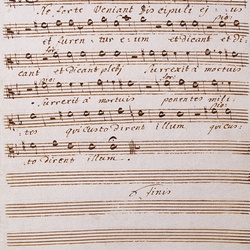 Ne forte Veniant Discipuli ej: us
pia:
et furen tur e um et dicant et di:
cant et dicant plebi Surrexit à mortuis
Surrexit à mortuis ponentes mili
pia:
tes qui custo dirent illum qui cus:
to dirent illum.
finis